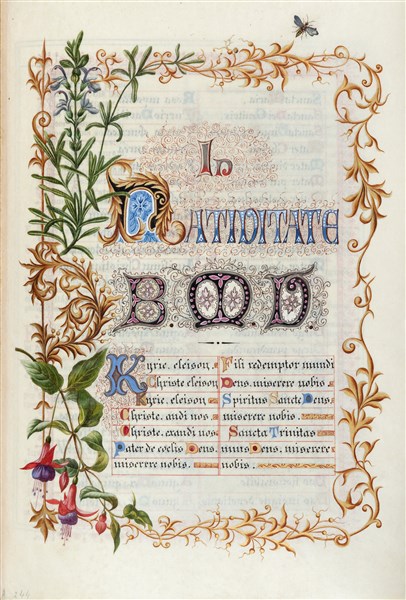 In
Nativitate
B. M. V.
Kyrie, eleison
Christe eleison
Kyrie, eleison
Christe, audi nos.
Christe, exaudi nos.
Pater de coelis Deus
miserere nobis.
Fili redemptor mundi
Deus, miserere nobis
Spiritus Sancte Deus
miserere nobis.
Sancta Trinitas
unus Deus, miserere
nobis.